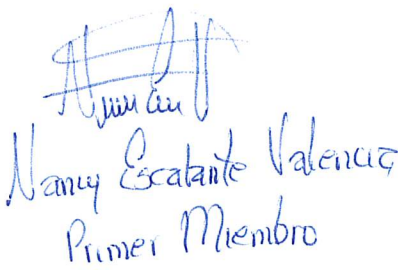 Nancy Escalante Valencia
Primer Miembro